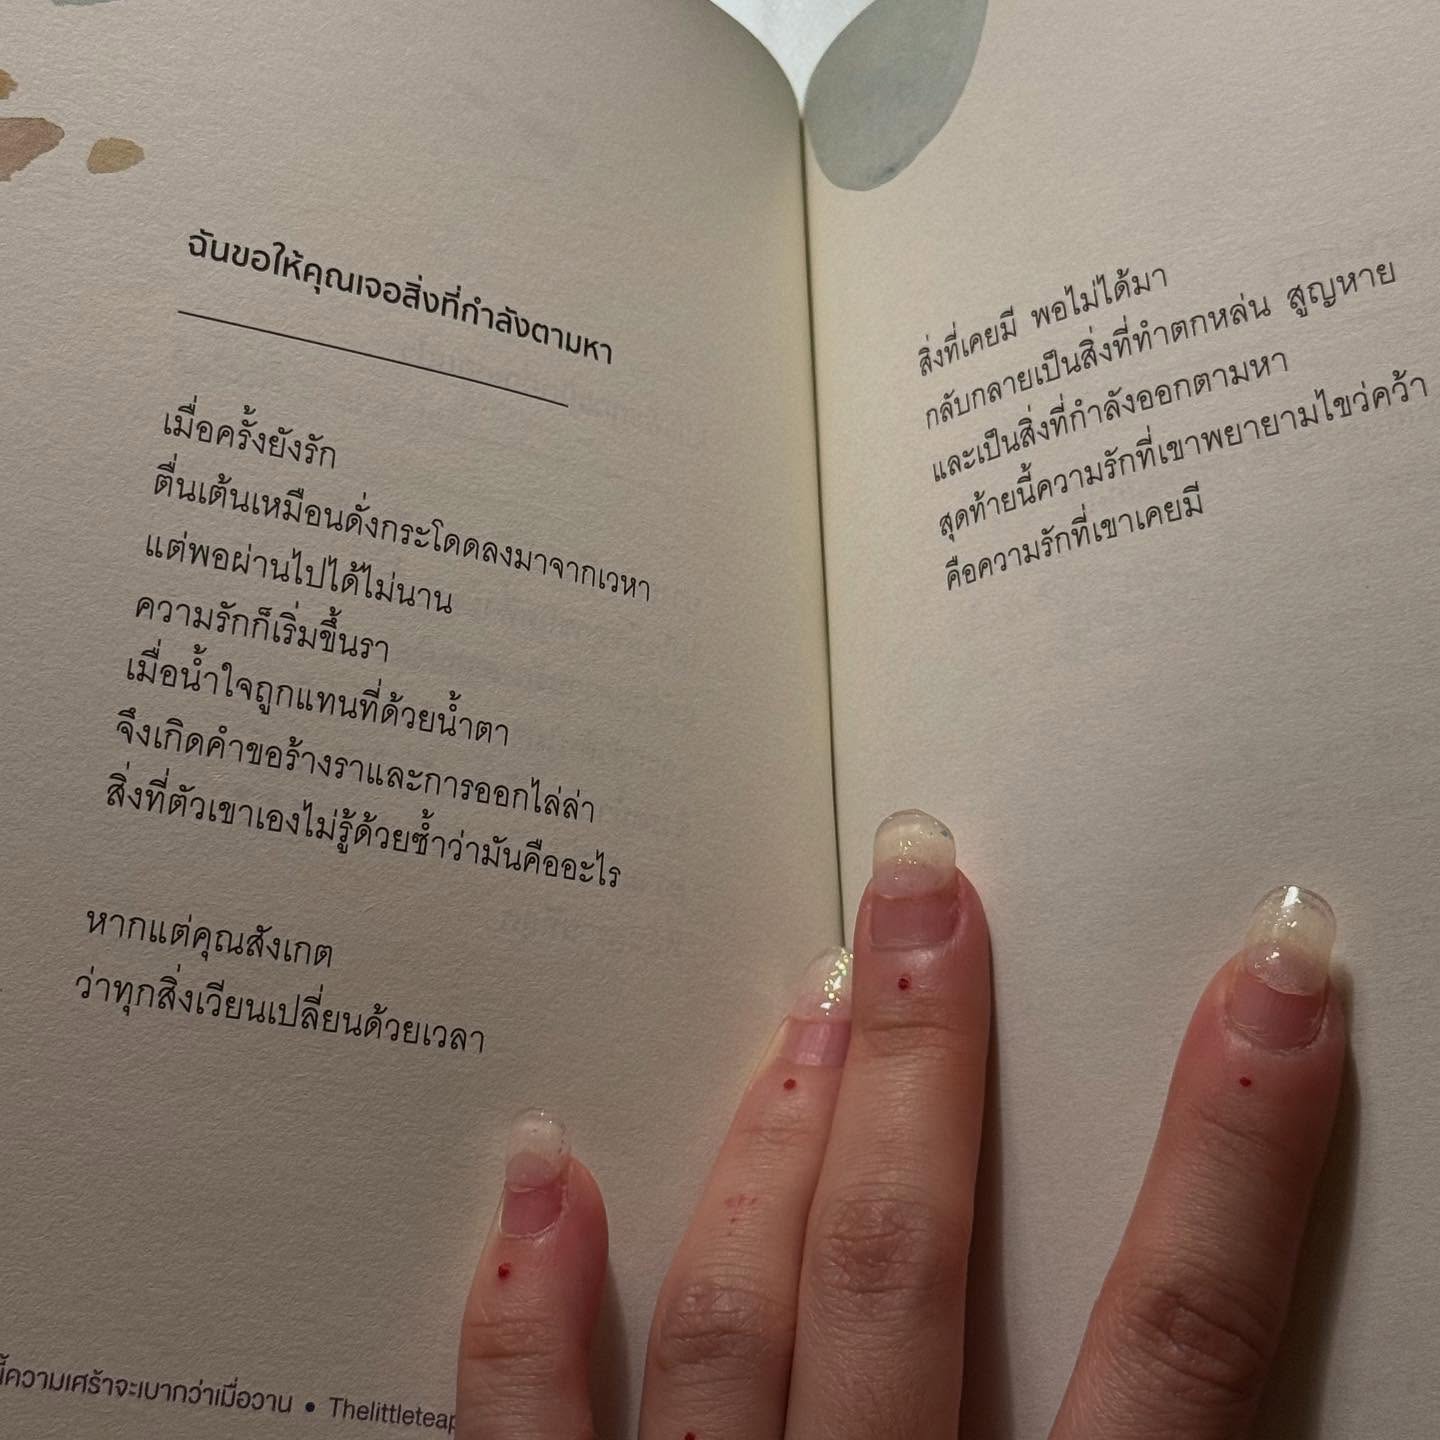 ฉันขอให้คุณเจอสิ่งที่กำลังตามหา
เมื่อครั้งยังรัก
ตื่นเต้นเหมือนดั่งกระโดดลงมาจากเวหา
แต่พอผ่านไปได้ไม่นาน
ความรักก็เริ่มขึ้นรา
เมื่อน้ำใจถูกแทนที่ด้วยน้ำตา
จึงเกิดคำขอร้างราและการออกไล่ล่า
สิ่งที่ตัวเขาเองไม่รู้ด้วยซ้ำว่ามันคืออะไร
หากแต่คุณสังเกต
ว่าทุกสิ่งเวียนเปลี่ยนด้วยเวลา
ความเศร้าจะเบากว่าเมื่อวาน •
สิ่งที่เคยมี พอไม่ได้มา
กลับกลายเป็นสิ่งที่ทำตกหล่น สูญหาย
และเป็นสิ่งที่กำลังออกตามหา
สุดท้ายนี้ความรักที่เขาพยายามไขว่คว้า
คือความรักที่เขาเคยมี